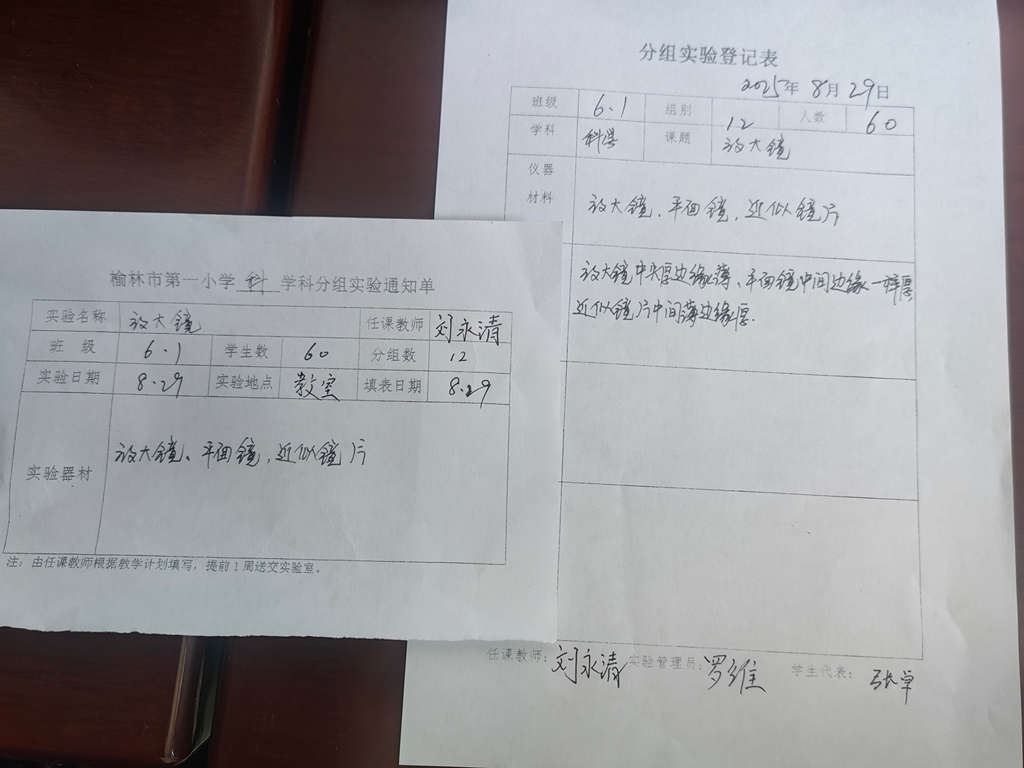 分组实验登记表
2025年 8月 29日
班级 6.1 组别 12 人数 60
学科 科学 课题 放大镜
仪器
材料
放大镜、平面镜、近似镜片
放大镜中央厚边缘薄、平面镜中间边缘一样厚
近似镜片中间薄边缘厚.
任课教师：刘永清 实验管理员：罗维 学生代表：张卓
榆林市第一小学 科 学科分组实验通知单
实验名称 放大镜 任课教师 刘永清
班 级 6.1 学生数 60 分组数 12
实验日期 8.29 实验地点 教室 填表日期 8.29
实验器材
放大镜、平面镜，近似镜片
注：由任课教师根据教学计划填写，提前1周送交实验室。